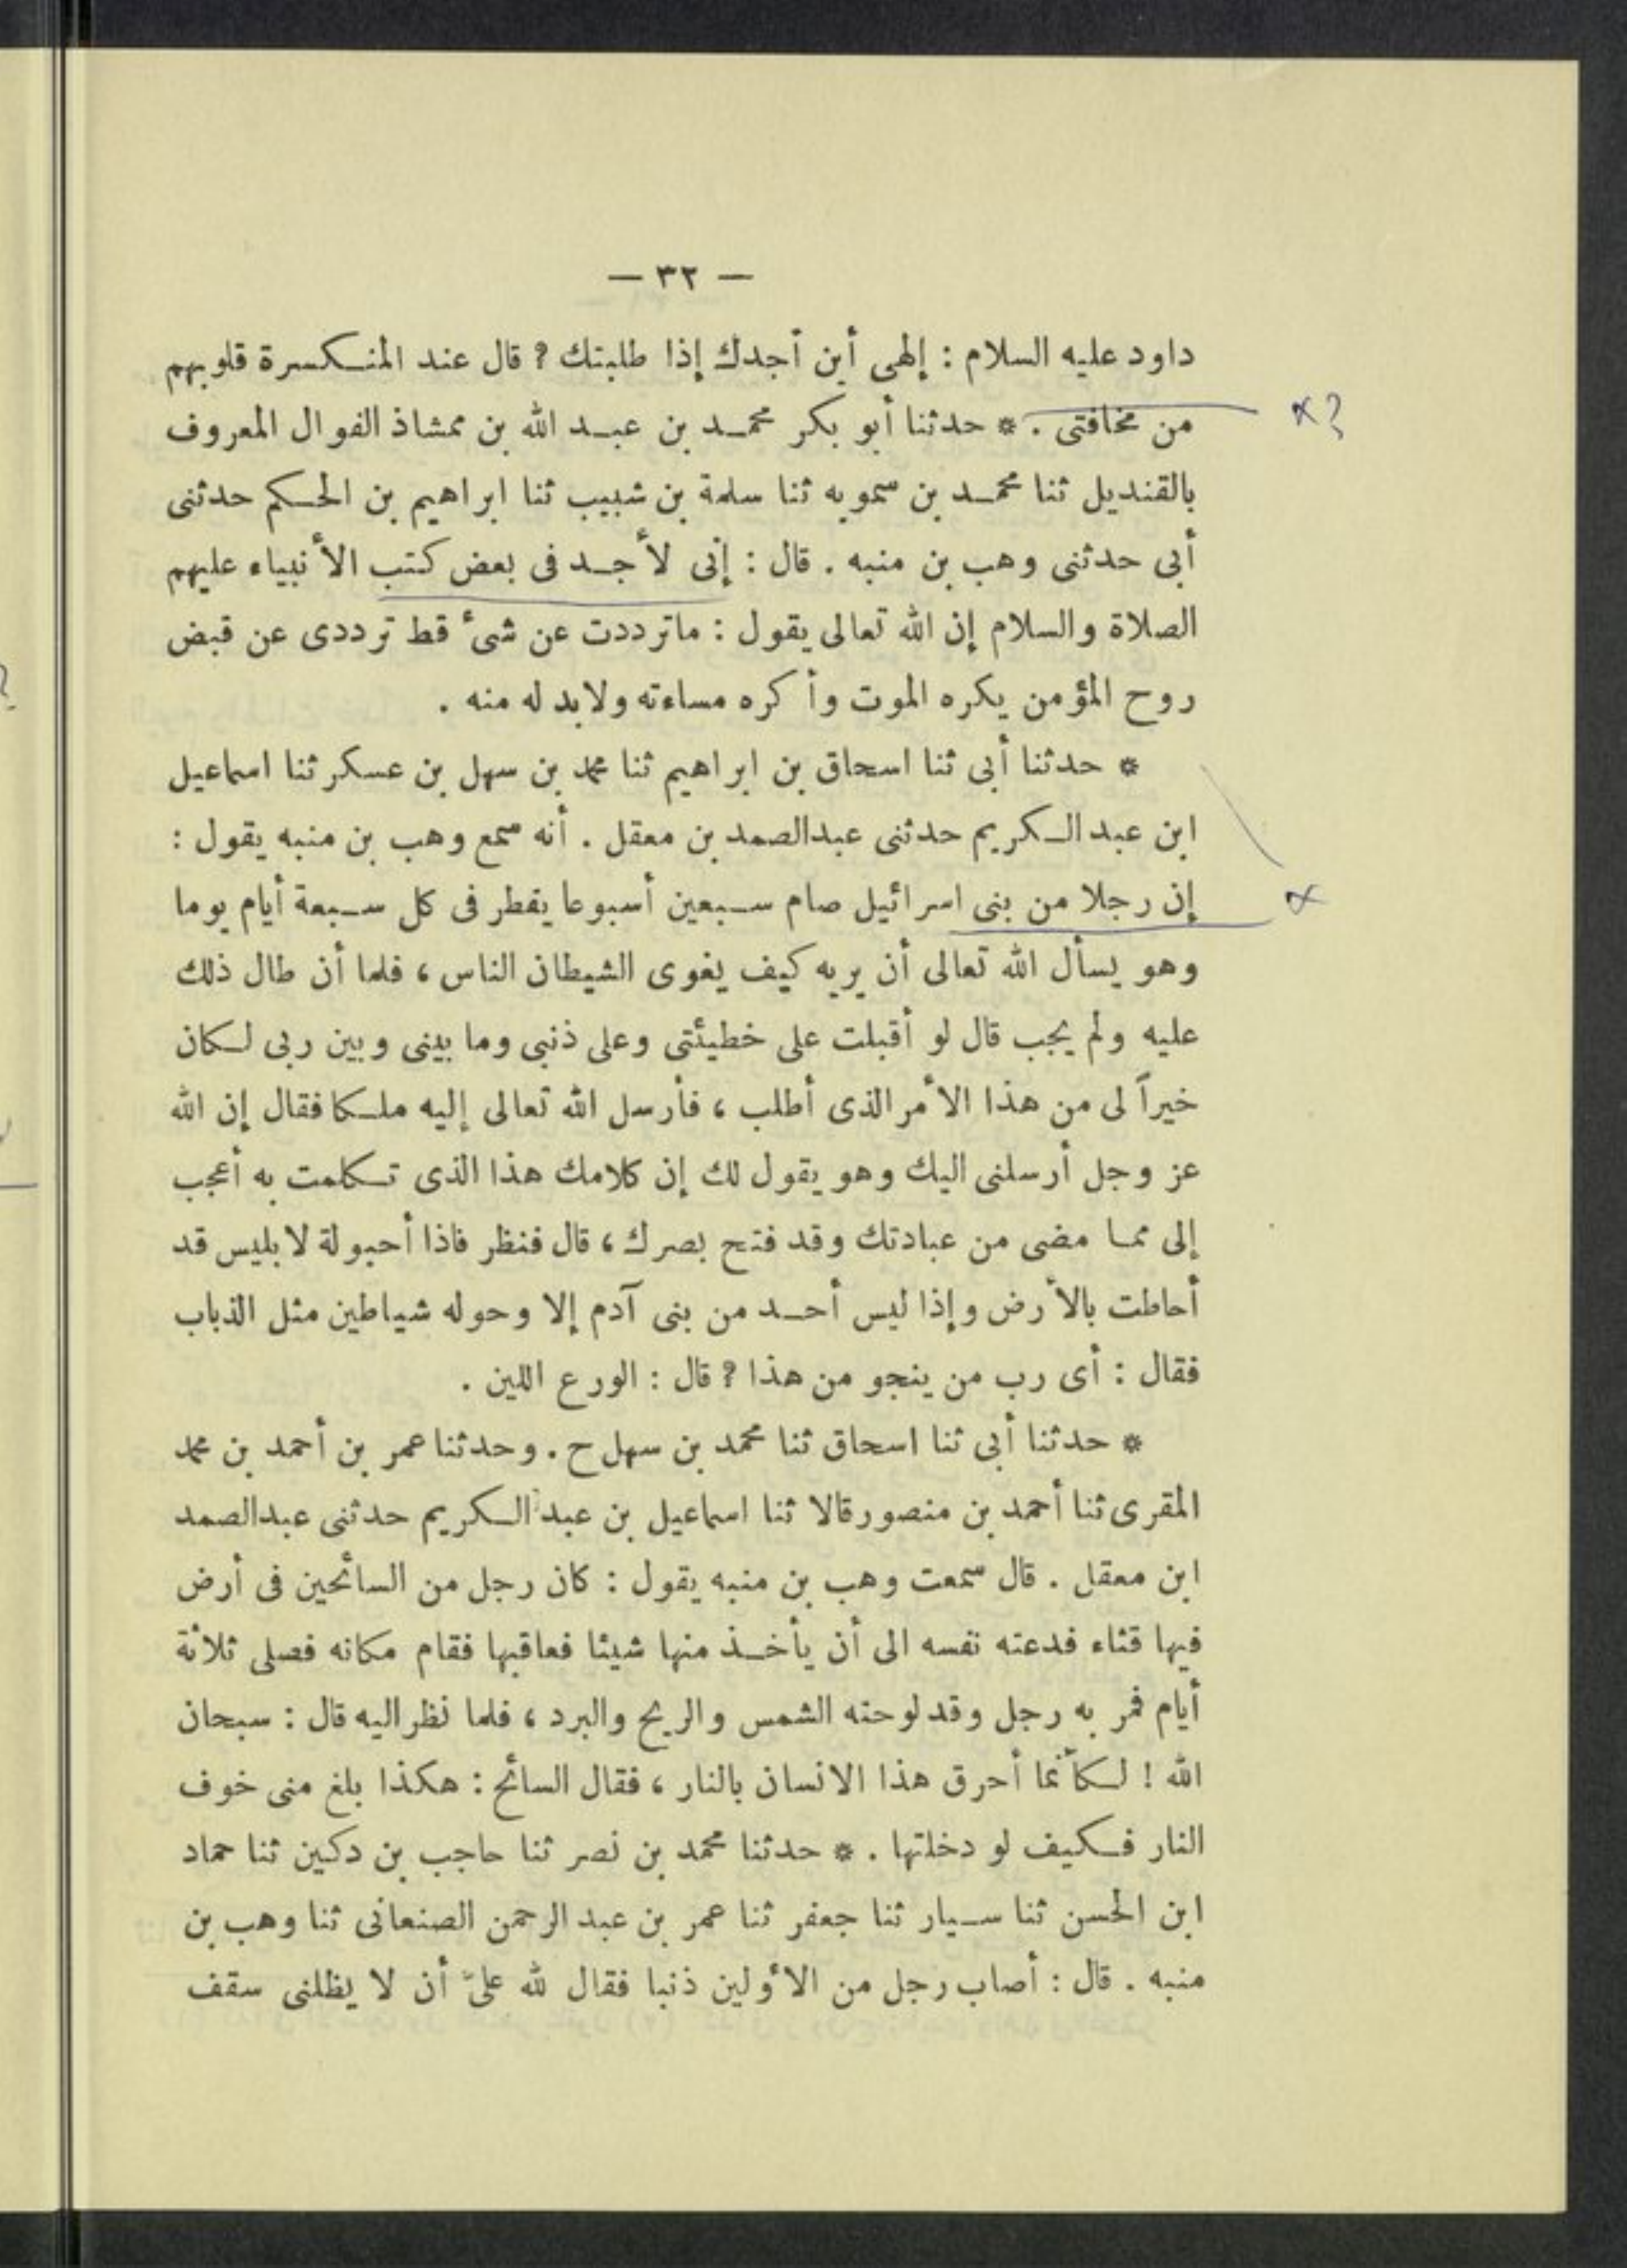 — ٣٢ —
داود عليه السلام : إلهى أين أجدك إذا طلبتك ؟ قال عند المنكسرة قلوبهم
من مخافتى . * حدثنا أبو بكر محمد بن عبد الله بن ممشاذ الفوال المعروف
بالقنديل ثنا محمد بن سمويه ثنا سلمة بن شبيب ثنا ابراهيم بن الحكم حدثنى
أبى حدثنى وهب بن منبه . قال : إنى لأجد فى بعض كتب الأنبياء عليهم
الصلاة والسلام إن الله تعالى يقول : ماترددت عن شىء قط ترددى عن قبض
روح المؤمن يكره الموت وأكره مساءته ولابد له منه .
* حدثنا أبى ثنا اسحاق بن ابراهيم ثنا محمد بن سهل بن عسكر ثنا اسماعيل
ابن عبد الكريم حدثنى عبدالصمد بن معقل . أنه سمع وهب بن منبه يقول :
إن رجلا من بنى اسرائيل صام سبعين أسبوعا يفطر فى كل سبعة أيام يوما
وهو يسأل الله تعالى أن يريه كيف يغوى الشيطان الناس ، فلما أن طال ذلك
عليه ولم يجب قال لو أقبلت على خطيئتى وعلى ذنبى وما بينى وبين ربى لكان
خيراً لى من هذا الأمر الذى أطلب ، فأرسل الله تعالى إليه ملكا فقال إن الله
عز وجل أرسلنى اليك وهو يقول لك إن كلامك هذا الذى تكلمت به أعجب
إلى مما مضى من عبادتك وقد فتح بصرك ، قال فنظر فاذا أحبولة لابليس قد
أحاطت بالأرض وإذا ليس أحد من بنى آدم إلا وحوله شياطين مثل الذباب
فقال : أى رب من ينجو من هذا ؟ قال : الورع اللين .
* حدثنا أبى ثنا اسحاق ثنا محمد بن سهل ح . وحدثنا عمر بن أحمد بن محمد
المقرى ثنا أحمد بن منصور قالا ثنا اسماعيل بن عبد الكريم حدثنى عبدالصمد
ابن معقل . قال سمعت وهب بن منبه يقول : كان رجل من السائحين فى أرض
فيها قثاء فدعته نفسه الى أن يأخذ منها شيئا فعاقبها فقام مكانه فصلى ثلاثة
أيام فمر به رجل وقد لوحته الشمس والريح والبرد ، فلما نظر اليه قال : سبحان
الله ! لكأنما أحرق هذا الانسان بالنار ، فقال السائح : هكذا بلغ منى خوف
النار فكيف لو دخلتها . * حدثنا محمد بن نصر ثنا حاجب بن دكين ثنا حماد
ابن الحسن ثنا سيار ثنا جعفر ثنا عمر بن عبد الرحمن الصنعانى ثنا وهب بن
منبه . قال : أصاب رجل من الأولين ذنبا فقال لله علىّ أن لا يظلنى سقف